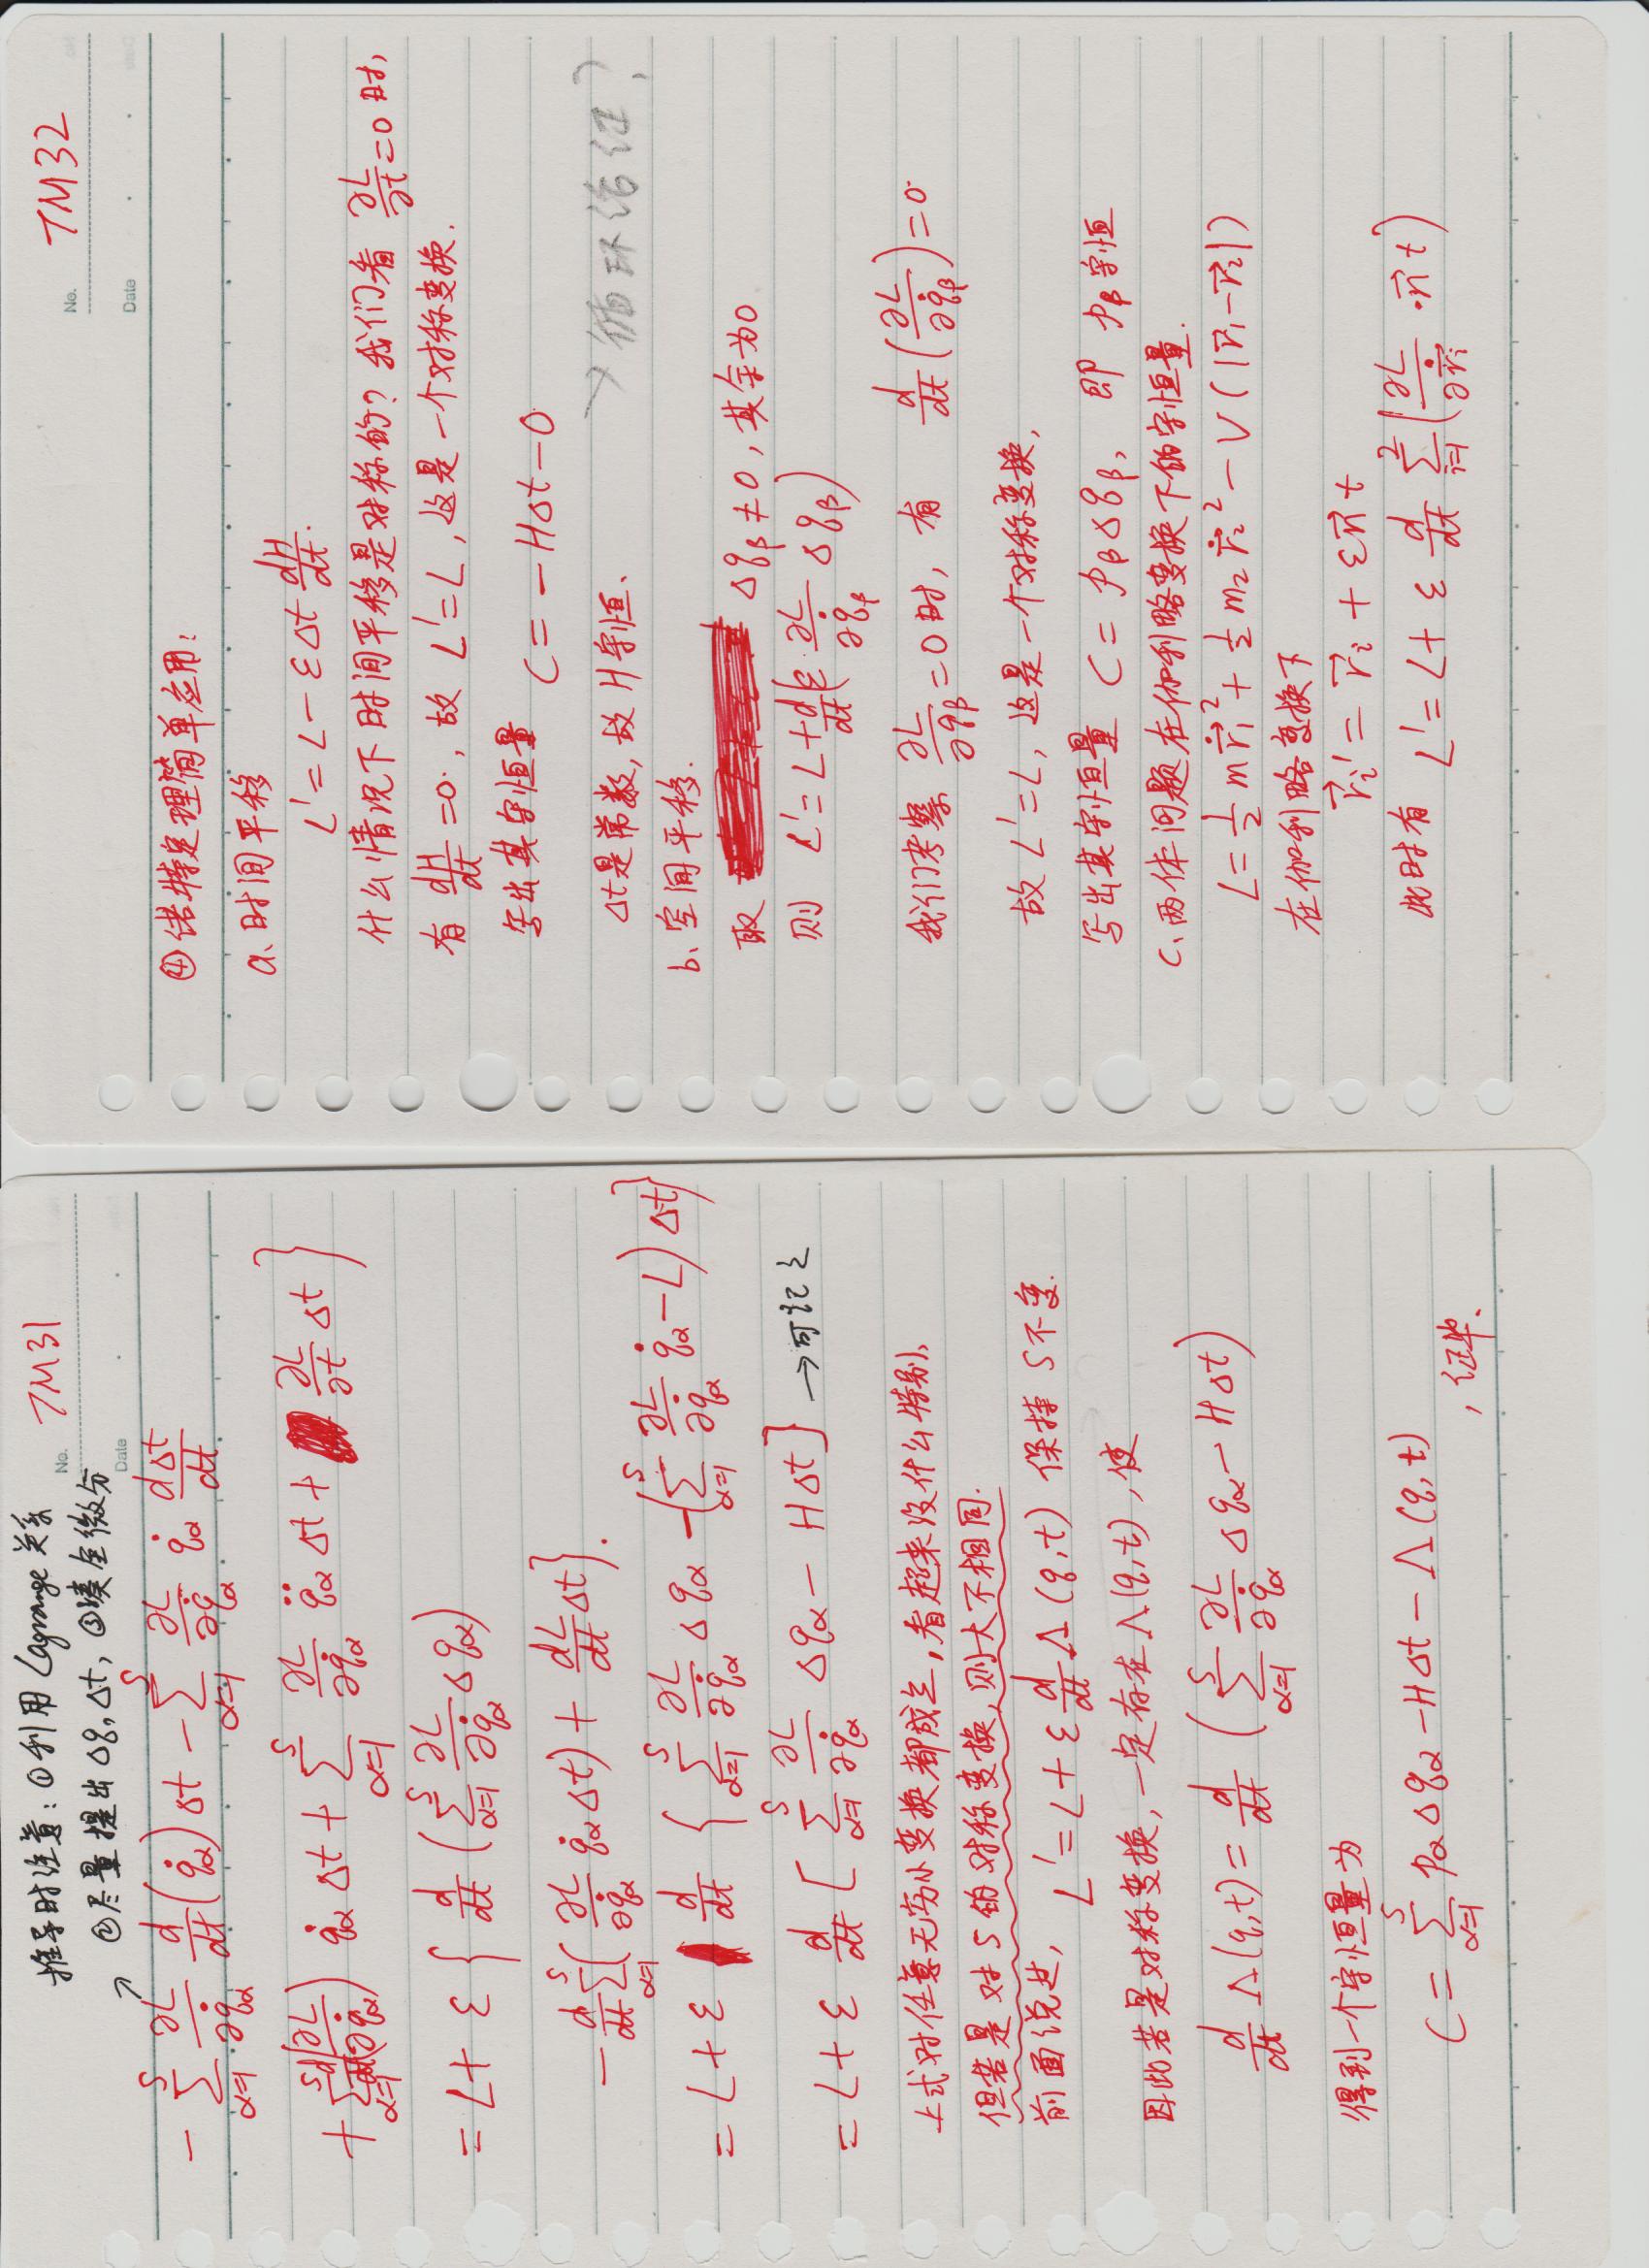 推导时注意：①利用Lagrange关系
②尽量提出Δq,Δt, ③凑全微分
No. TM31
Date
- \sum_{α=1}^{s} \frac{∂L}{∂\dot{q}_α} \frac{d}{dt}(\dot{q}_α) Δt - \sum_{α=1}^{s} \frac{∂L}{∂\dot{q}_α} \dot{q}_α \frac{dΔt}{dt}
+ \sum_{α=1}^{s} \frac{d}{dt}(\frac{∂L}{∂\dot{q}_α}) \dot{q}_α Δt + \sum_{α=1}^{s} \frac{∂L}{∂\dot{q}_α} \ddot{q}_α Δt + \frac{∂L}{∂t} Δt }
= L + ε { \frac{d}{dt} ( \sum_{α=1}^{s} \frac{∂L}{∂\dot{q}_α} Δq_α )
- \frac{d}{dt} \sum_{α=1}^{s} ( \frac{∂L}{∂\dot{q}_α} \dot{q}_α Δt ) + \frac{dL}{dt} Δt }.
= L + ε \frac{d}{dt} { \sum_{α=1}^{s} \frac{∂L}{∂\dot{q}_α} Δq_α - ( \sum_{α=1}^{s} \frac{∂L}{∂\dot{q}_α} \dot{q}_α - L ) Δt }
= L + ε \frac{d}{dt} [ \sum_{α=1}^{s} \frac{∂L}{∂\dot{q}_α} Δq_α - HΔt ] → 可记之
上式对任意无穷小变换都成立,看起来没什么特别、
但若是对S的对称变换,则大不相同.
前面说过, L' = L + ε \frac{d}{dt} Λ(q,t) 保持S不变.
因此若是对称变换,一定存在Λ(q,t),使
\frac{d}{dt} Λ(q,t) = \frac{d}{dt} ( \sum_{α=1}^{s} \frac{∂L}{∂\dot{q}_α} Δq_α - HΔt )
得到一个守恒量为
C = \sum_{α=1}^{s} p_α Δq_α - HΔt - Λ(q,t)
,证毕.
No. TM32
Date
④诺特定理简单应用:
a、时间平移
L' = L - εΔt \frac{dH}{dt}.
什么情况下时间平移是对称的?我们看 \frac{∂L}{∂t}=0 时,
有 \frac{dH}{dt}=0, 故 L'=L, 这是一个对称变换.
写出其守恒量 C = -HΔt-0
Δt是常数,故H守恒、
→循环论证?
b、空间平移.
取 Δq_β ≠ 0, 其余为0
则 L' = L + \frac{d}{dt}( ε \frac{∂L}{∂\dot{q}_β} Δq_β )
我们考察 \frac{∂L}{∂q_β}=0时, 有 \frac{d}{dt}(\frac{∂L}{∂\dot{q}_β})=0
故 L'=L, 这是一个对称变换,
写出其守恒量 C = p_βΔq_β, 即 p_β守恒
c、两体问题在伽利略变换下的守恒量.
L = \frac{1}{2} m\dot{\vec{r}}_1^2 + \frac{1}{2} m_2\dot{\vec{r}}_2^2 - V(|\vec{r}_1-\vec{r}_2|)
在伽利略变换下
\vec{r}_i' = \vec{r}_i + ε\vec{n}t
此时有 L' = L + ε \frac{d}{dt} \sum_{i=1}^{2} ( \frac{∂L}{∂\dot{\vec{r}}_i} · \vec{n}t )